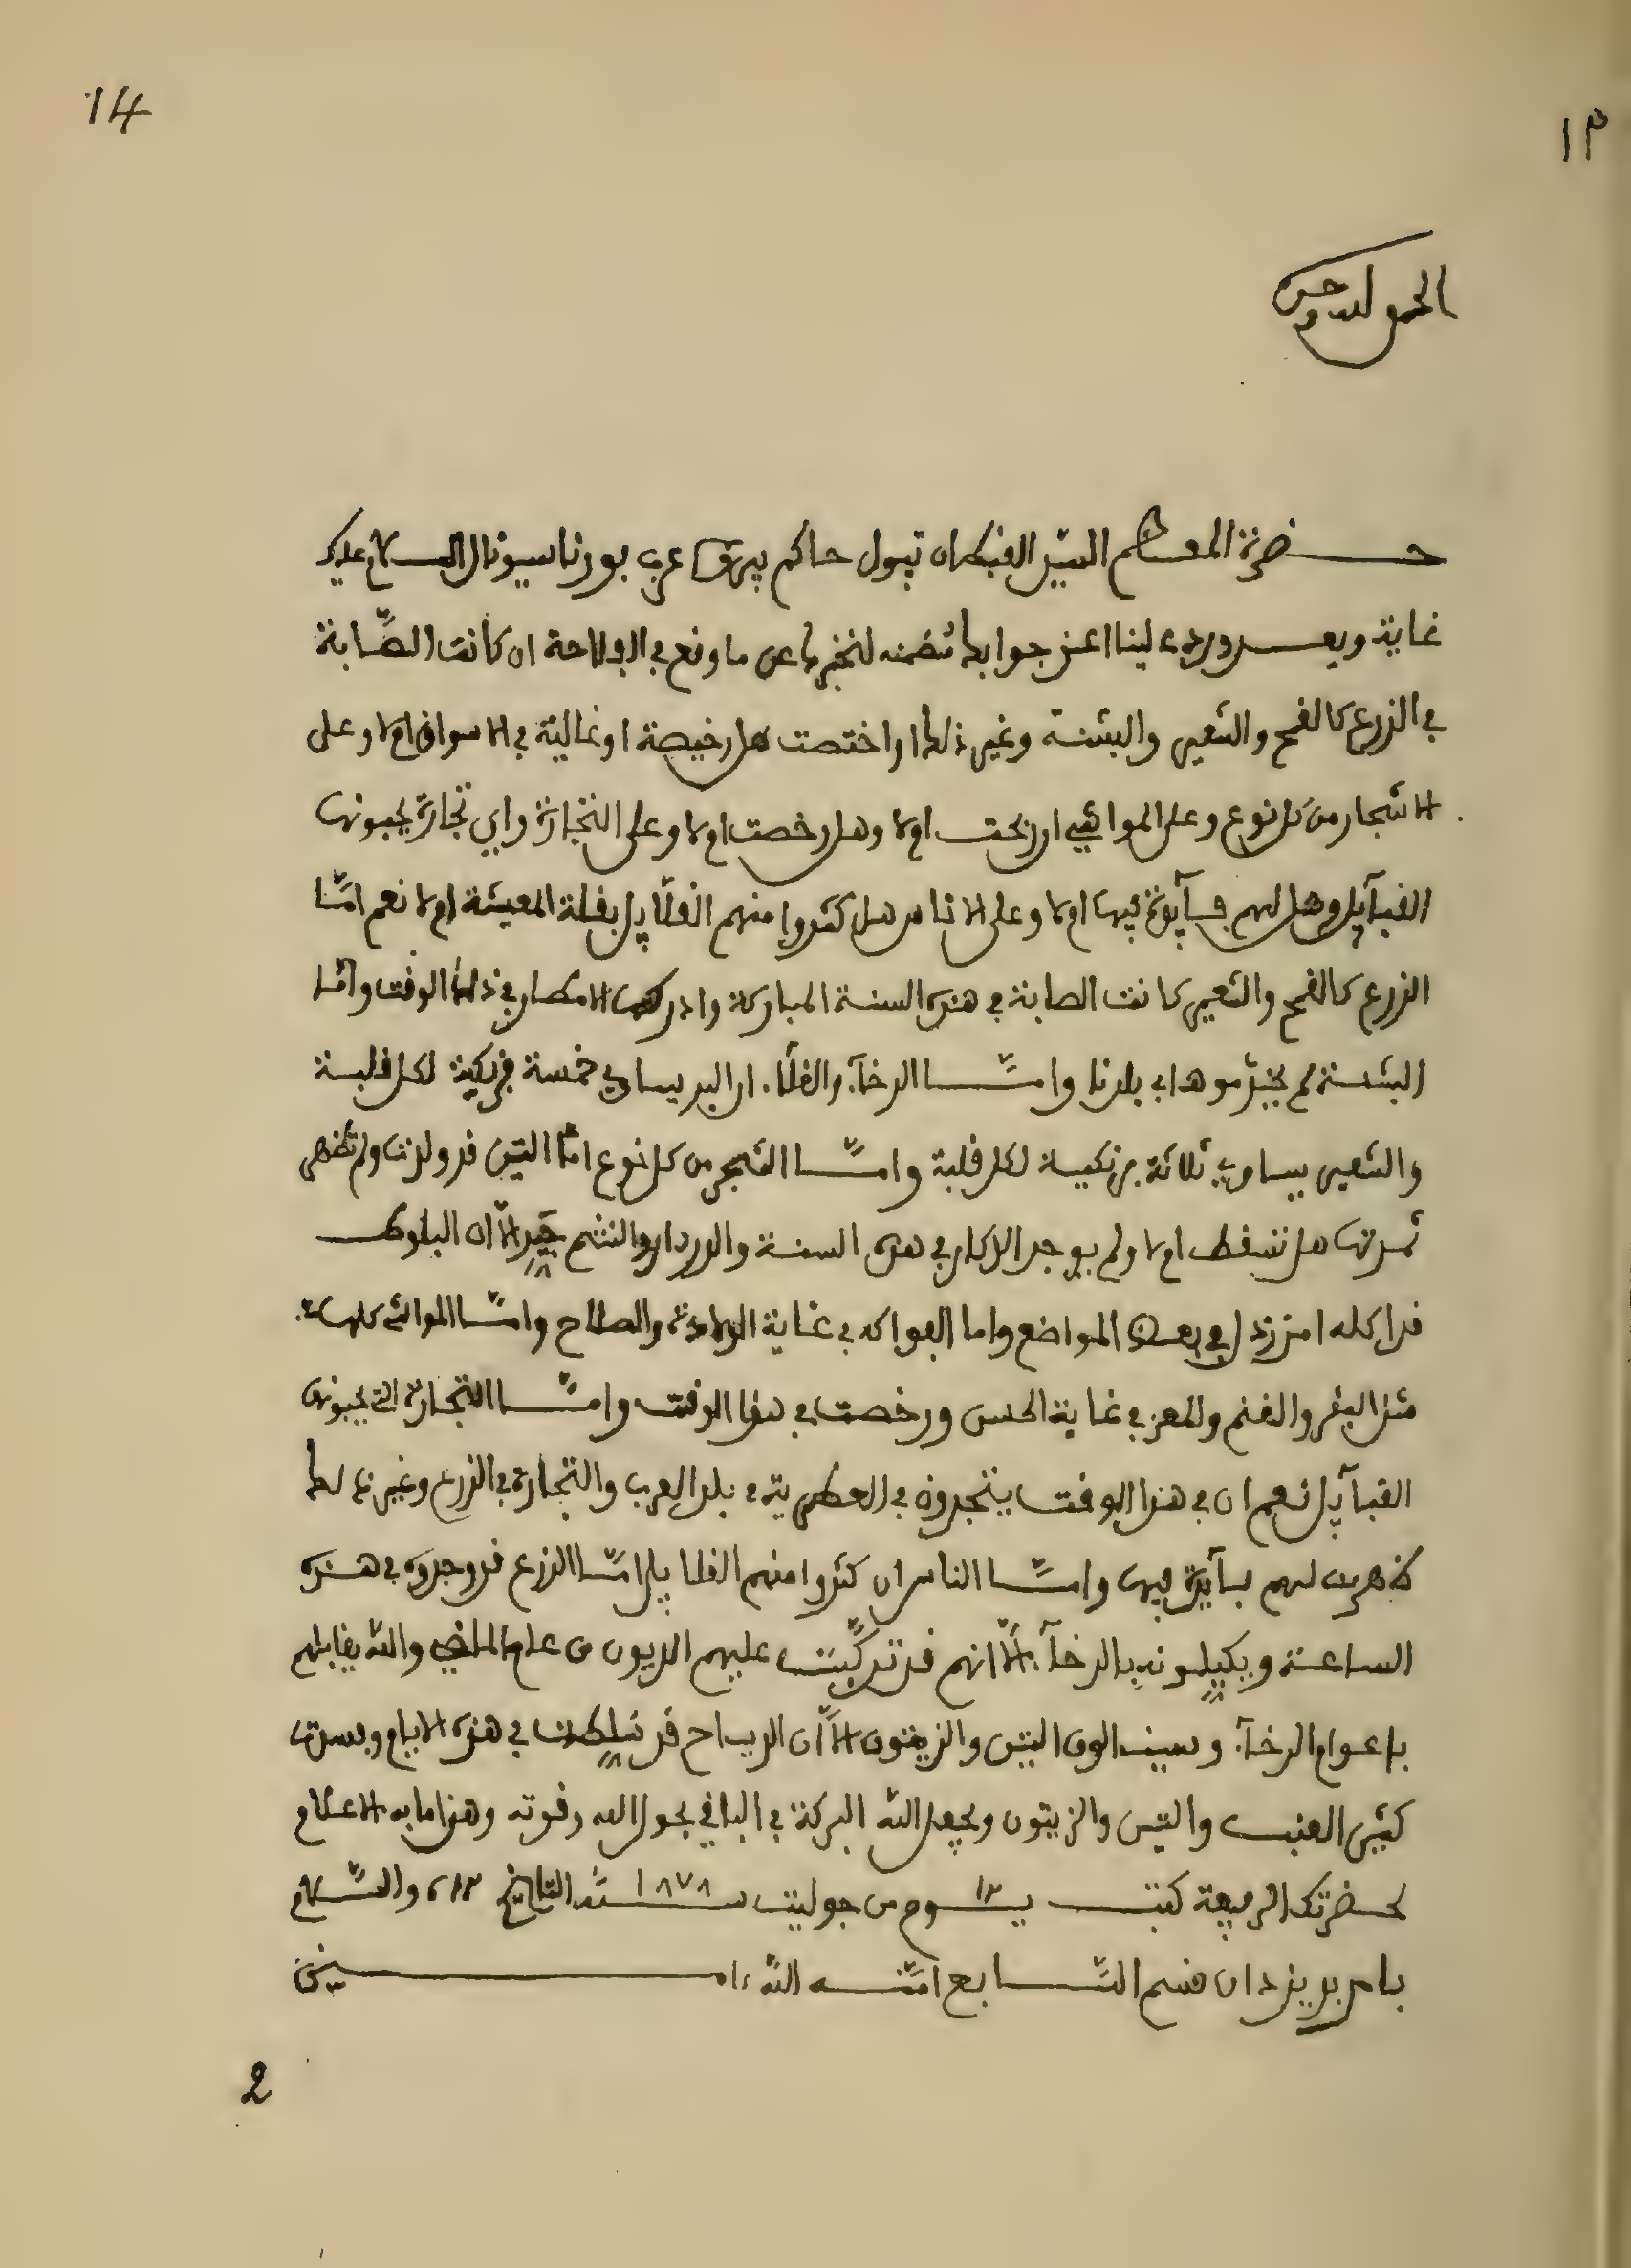 14
١٣
الحمد لله وحده
حضرة المعظم السيد القبطان تبول حاكم بيرو عرب بورناسيونال السلام عليك
غاية وبعد ورد علينا اعز جوابك متضمنه لنخبرك عن ما وقع في الفلاحة ان كانت الصّابة
في الزرع كالقمح والشعير والبشنة وغير ذلك او اختصت هل رخيصة او غالية في الاسواق ام لا وعلى
الاشجار من كل نوع وعلى المواشي ان ربحت ام لا وهل رخصت ام لا وعلى التجارة واي تجارة يجيبونها
القبآيل وهل لهم فآيدة فيها ام لا وعلى الاناس هل كثروا منهم القلايل بقلة المعيشة ام لا نعم امّا
الزرع كالقمح والشعير كانت الصابة في هذه السنة المباركة وادركها الامطار في ذلك الوقت وامّا
البشنة لم يخدّموها في بلدنا وامّا الرخآء والغلاء ان البر يساوي خمسة فرنكية لكل قلبة
والشعير يساوي ثلاثة فرنكية لكل قلبة وامّا الشجر من كل نوع امّا التين قد ولدت ولم تظهر
ثمرتها هل تسقط ام لا ولم يوجد الذكار في هذه السنة والدردار والنشم جيّد الّا ان البلوط
قد اكله امزرزل في بعض المواضع واما الفواكه في غاية الولادة والصلاح وامّا المواشي كلها
مثل البقر والغنم والمعز في غاية الحسن ورخصت في هذا الوقت وامّا التجارة التي يجيبونها
القبآيل نعم ان في هذا الوقت يتجروه في العطرية في بلد العرب والتجارة في الزرع وغير ذلك
ظهرت لهم فآيدة فيها وامّا الناس ان كثروا منهم القلايل امّا الزرع قد وجدوه في هذه
الساعة ويكيلونه بالرخآء الّا انهم قد تركّبت عليهم الديون من عام الماضي والله يقابلهم
باعوام الرخآء وسيف الون التين والزيتون الّا ان الرياح قد سلطت في هذه الايام وفسدت
كثير العنب والتين والزيتون ويجعل الله البركة في الباقي بحول الله وقوته وهذا ما به الاعلام
لحضرتك الرفيعة كتب يوم ١٣ من جوليت سنة ١٨٧٨ التاريخ والسّلام
بامر بريزدان قسم التابع امّنه الله ءامين
2